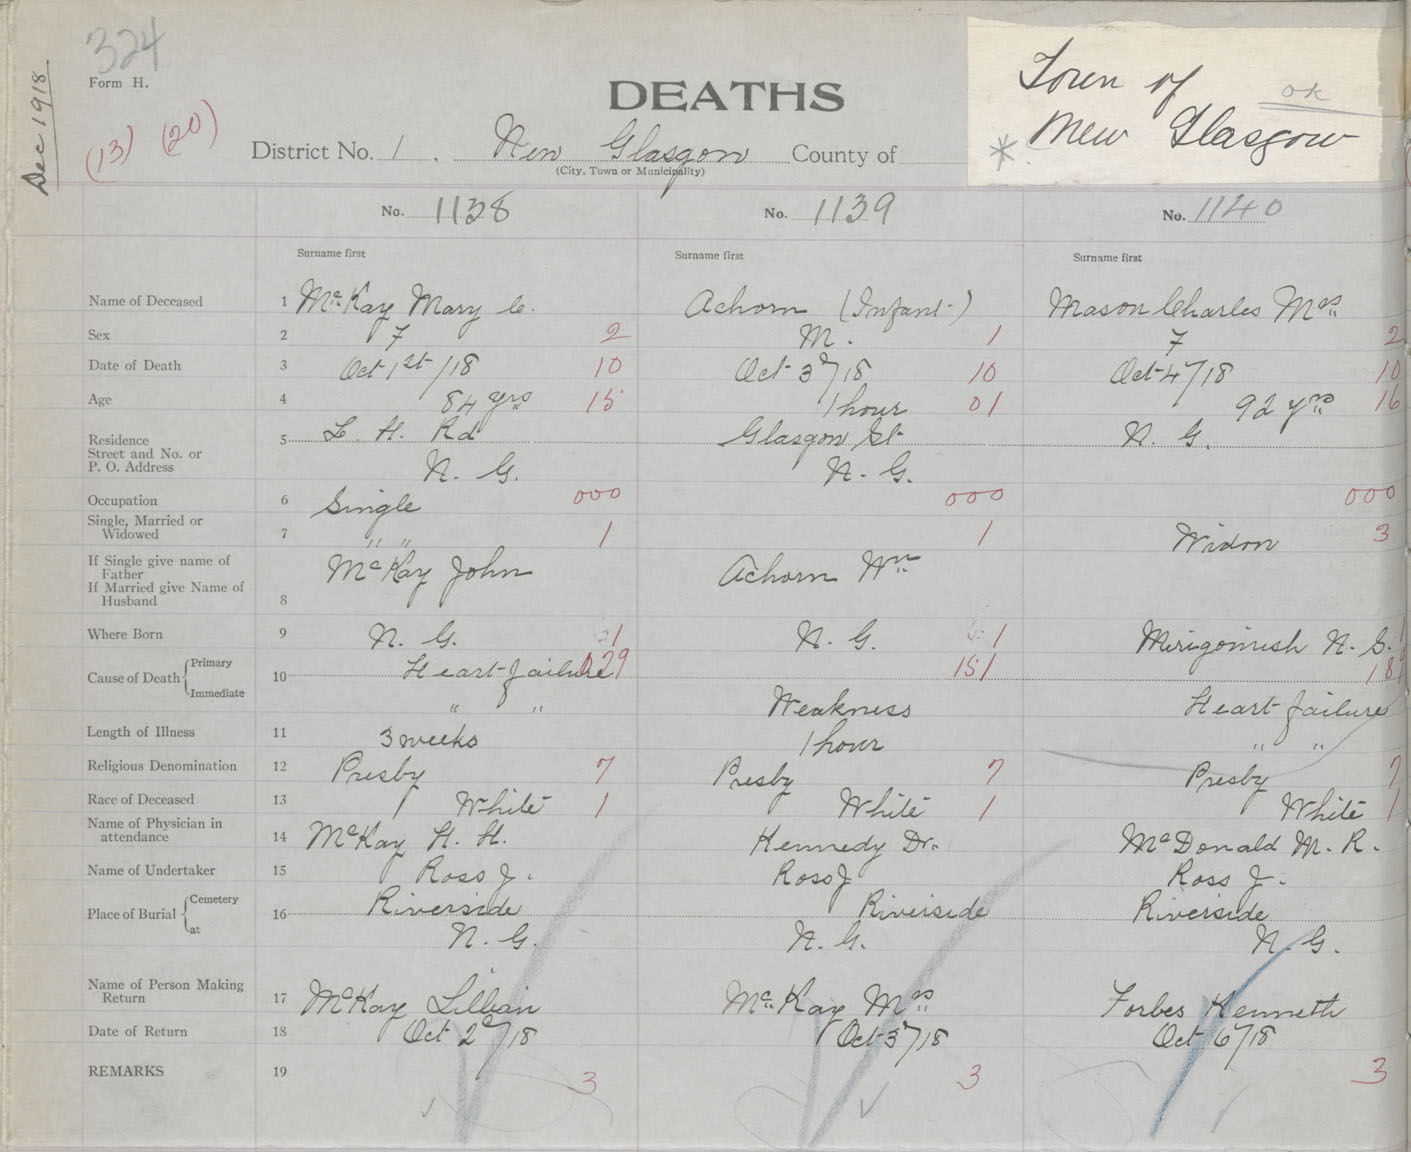 324
Form H.
Dec 1918
(13) (20)
DEATHS
Town of
New Glasgow
ok
*
District No. 1. New Glasgow County of
(City, Town or Municipality)
No. 1138 No. 1139 No. 1140
Surname first Surname first Surname first
Name of Deceased 1 McKay Mary C. Achorn (Infant) Mason Charles Mrs
Sex 2 F 2 M. 1 F 2
Date of Death 3 Oct 1st/18 10 Oct 3rd/18 10 Oct 4/18 10
Age 4 84 yrs 15 1 hour 01 92 yrs 16
Residence
Street and No. or
P. O. Address
5 L. H. Rd Glasgow St N. G.
N. G. N. G.
Occupation 6 Single 000 000 000
Single, Married or
Widowed
7 " " 1 1 Widow 3
If Single give name of
Father
If Married give Name of
Husband
8 McKay John Achorn Wm
Where Born 9 N. G. 1 N. G. 1 Merigomish N. S. 1
Cause of Death { Primary
Immediate
10 Heart failure 129 151 181
" " Weakness Heart failure
Length of Illness 11 3 weeks 1 hour " "
Religious Denomination 12 Presby 7 Presby 7 Presby 7
Race of Deceased 13 White 1 White 1 White 1
Name of Physician in
attendance
14 McKay H. H. Kennedy Dr. McDonald M. R.
Name of Undertaker 15 Ross J. Ross J Ross J.
Place of Burial { Cemetery
at
16 Riverside Riverside Riverside
N. G. N. G. N. G.
Name of Person Making
Return
17 McKay Lillian McKay Mrs Forbes Kenneth
Date of Return 18 Oct 2nd/18 Oct 3rd/18 Oct 6/18
REMARKS 19 3 3 3